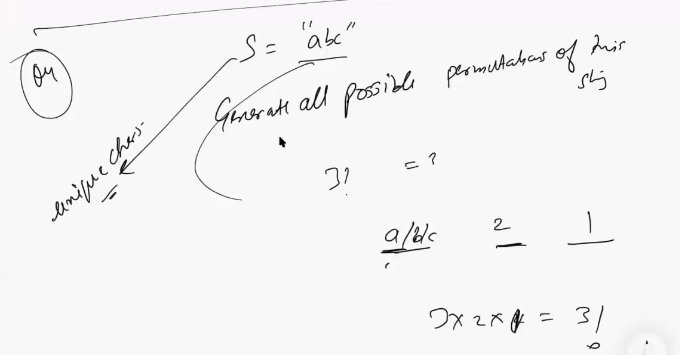 Q4
S = "abc"
Generate all possible permutations of this
unique chars
3! = ?
a/b/c 2 1
3 x 2 x 1 = 3!